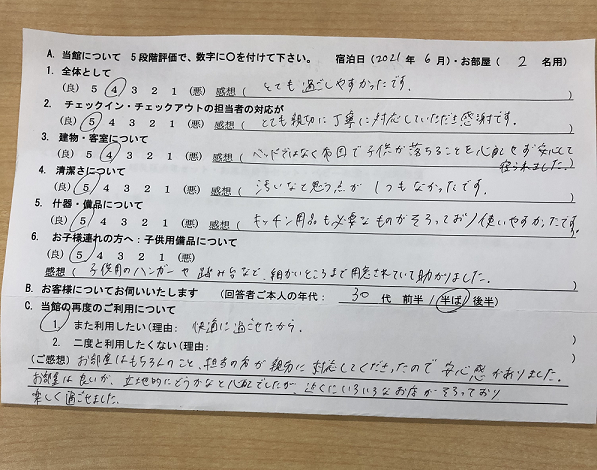 A. 当館について 5段階評価で、数字に○を付けて下さい。 宿泊日(2021年 6月)・お部屋( 2 名用)
1. 全体として
(良) 5 4 3 2 1 (悪) 感想( とても過ごしやすかったです。 )
2. チェックイン・チェックアウトの担当者の対応が
(良) 5 4 3 2 1 (悪) 感想( とても親切に丁寧に対応していただき感謝です。 )
3. 建物・客室について
(良) 5 4 3 2 1 (悪) 感想( ベッドではなく布団で子供が落ちることを心配せず安心して
寝られました。 )
4. 清潔さについて
(良) 5 4 3 2 1 (悪) 感想( 汚いなと思う点が1つもなかったです。 )
5. 什器・備品について
(良) 5 4 3 2 1 (悪) 感想( キッチン用品も必要なものがそろっており使いやすかったです。 )
6. お子様連れの方へ:子供用備品について
(良) 5 4 3 2 1 (悪)
感想( 子供用のハンガーや踏み台など、細かいところまで用意されていて助かりました。 )
B. お客様についてお伺いいたします (回答者ご本人の年代: 30 代 前半/半ば/後半)
C. 当館の再度のご利用について
1. また利用したい(理由: 快適に過ごせたから。 )
2. 二度と利用したくない(理由: )
(ご感想) お部屋はもちろんのこと、担当の方が親切に対応してくださったので安心感がありました。
お部屋は良いが、立地的にどうかなと心配でしたが、近くにいろいろなお店がそろっており
楽しく過ごせました。